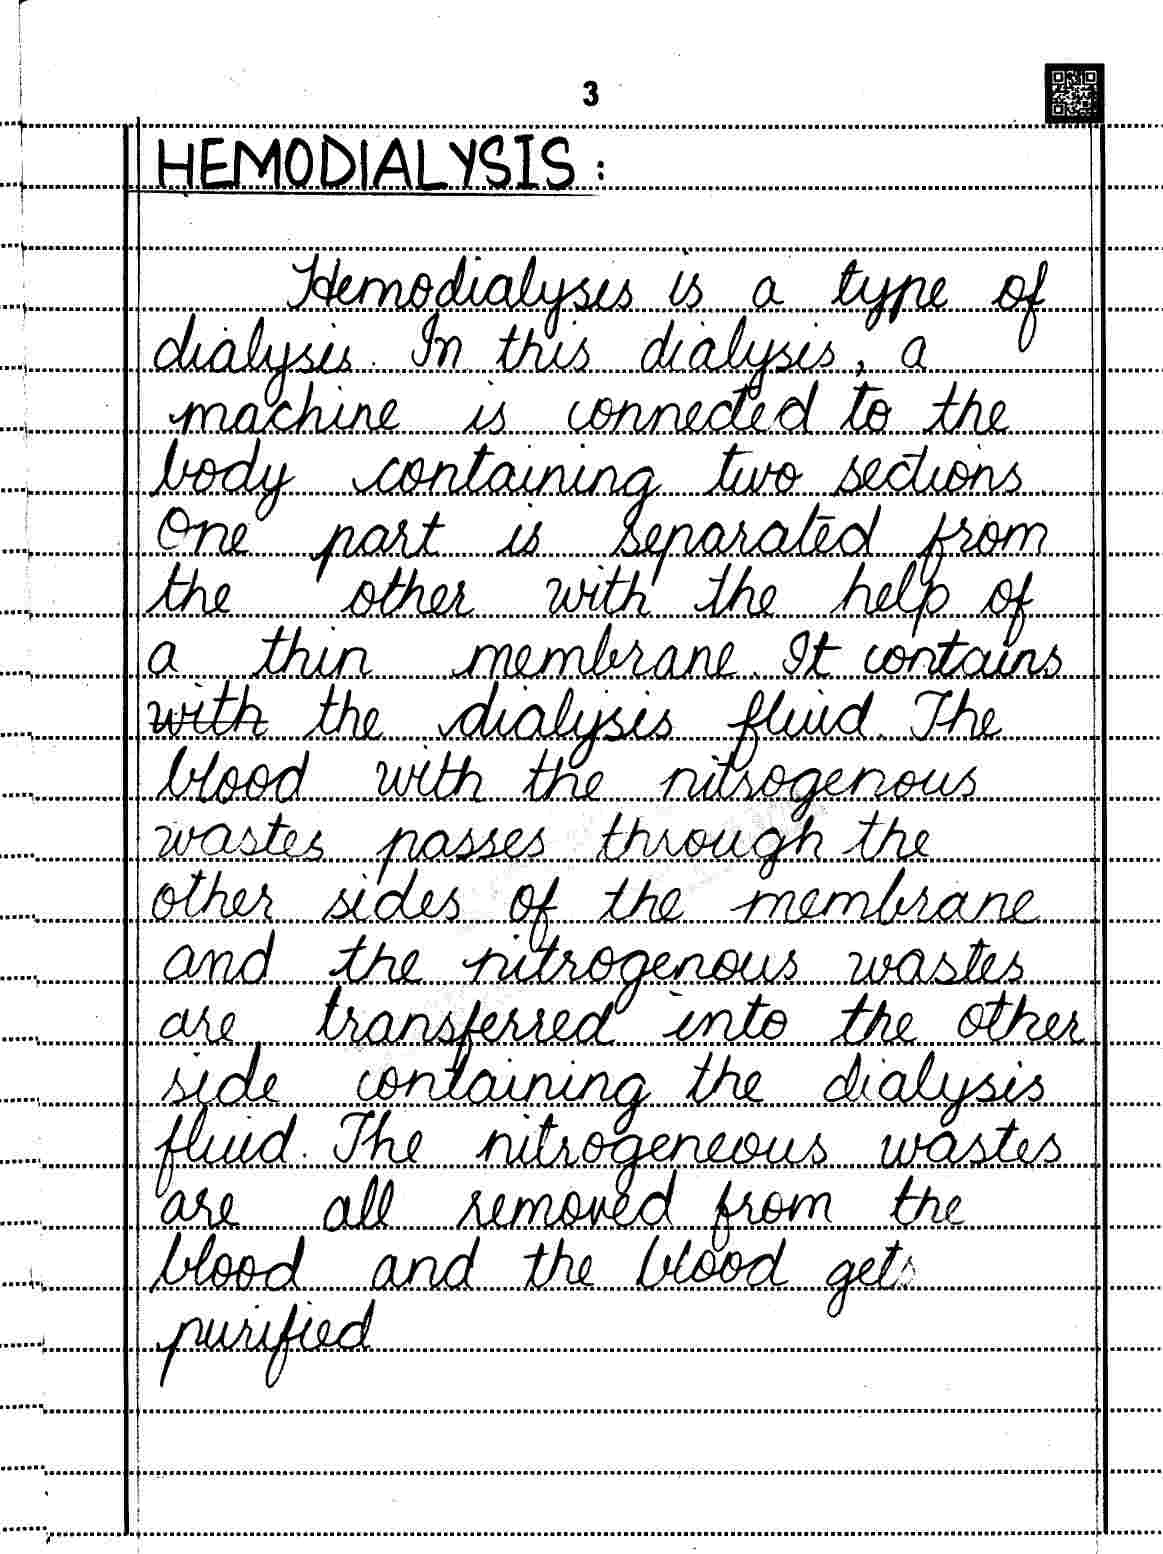 3
HEMODIALYSIS :
Hemodialysis is a type of
dialysis. In this dialysis, a
machine is connected to the
body containing two sections
One part is separated from
the other with the help of
a thin membrane. It contains
with the dialysis fluid. The
blood with the nitrogenous
wastes passes through the
other sides of the membrane
and the nitrogenous wastes
are transferred into the other
side containing the dialysis
fluid. The nitrogeneous wastes
are all removed from the
blood and the blood gets
purified